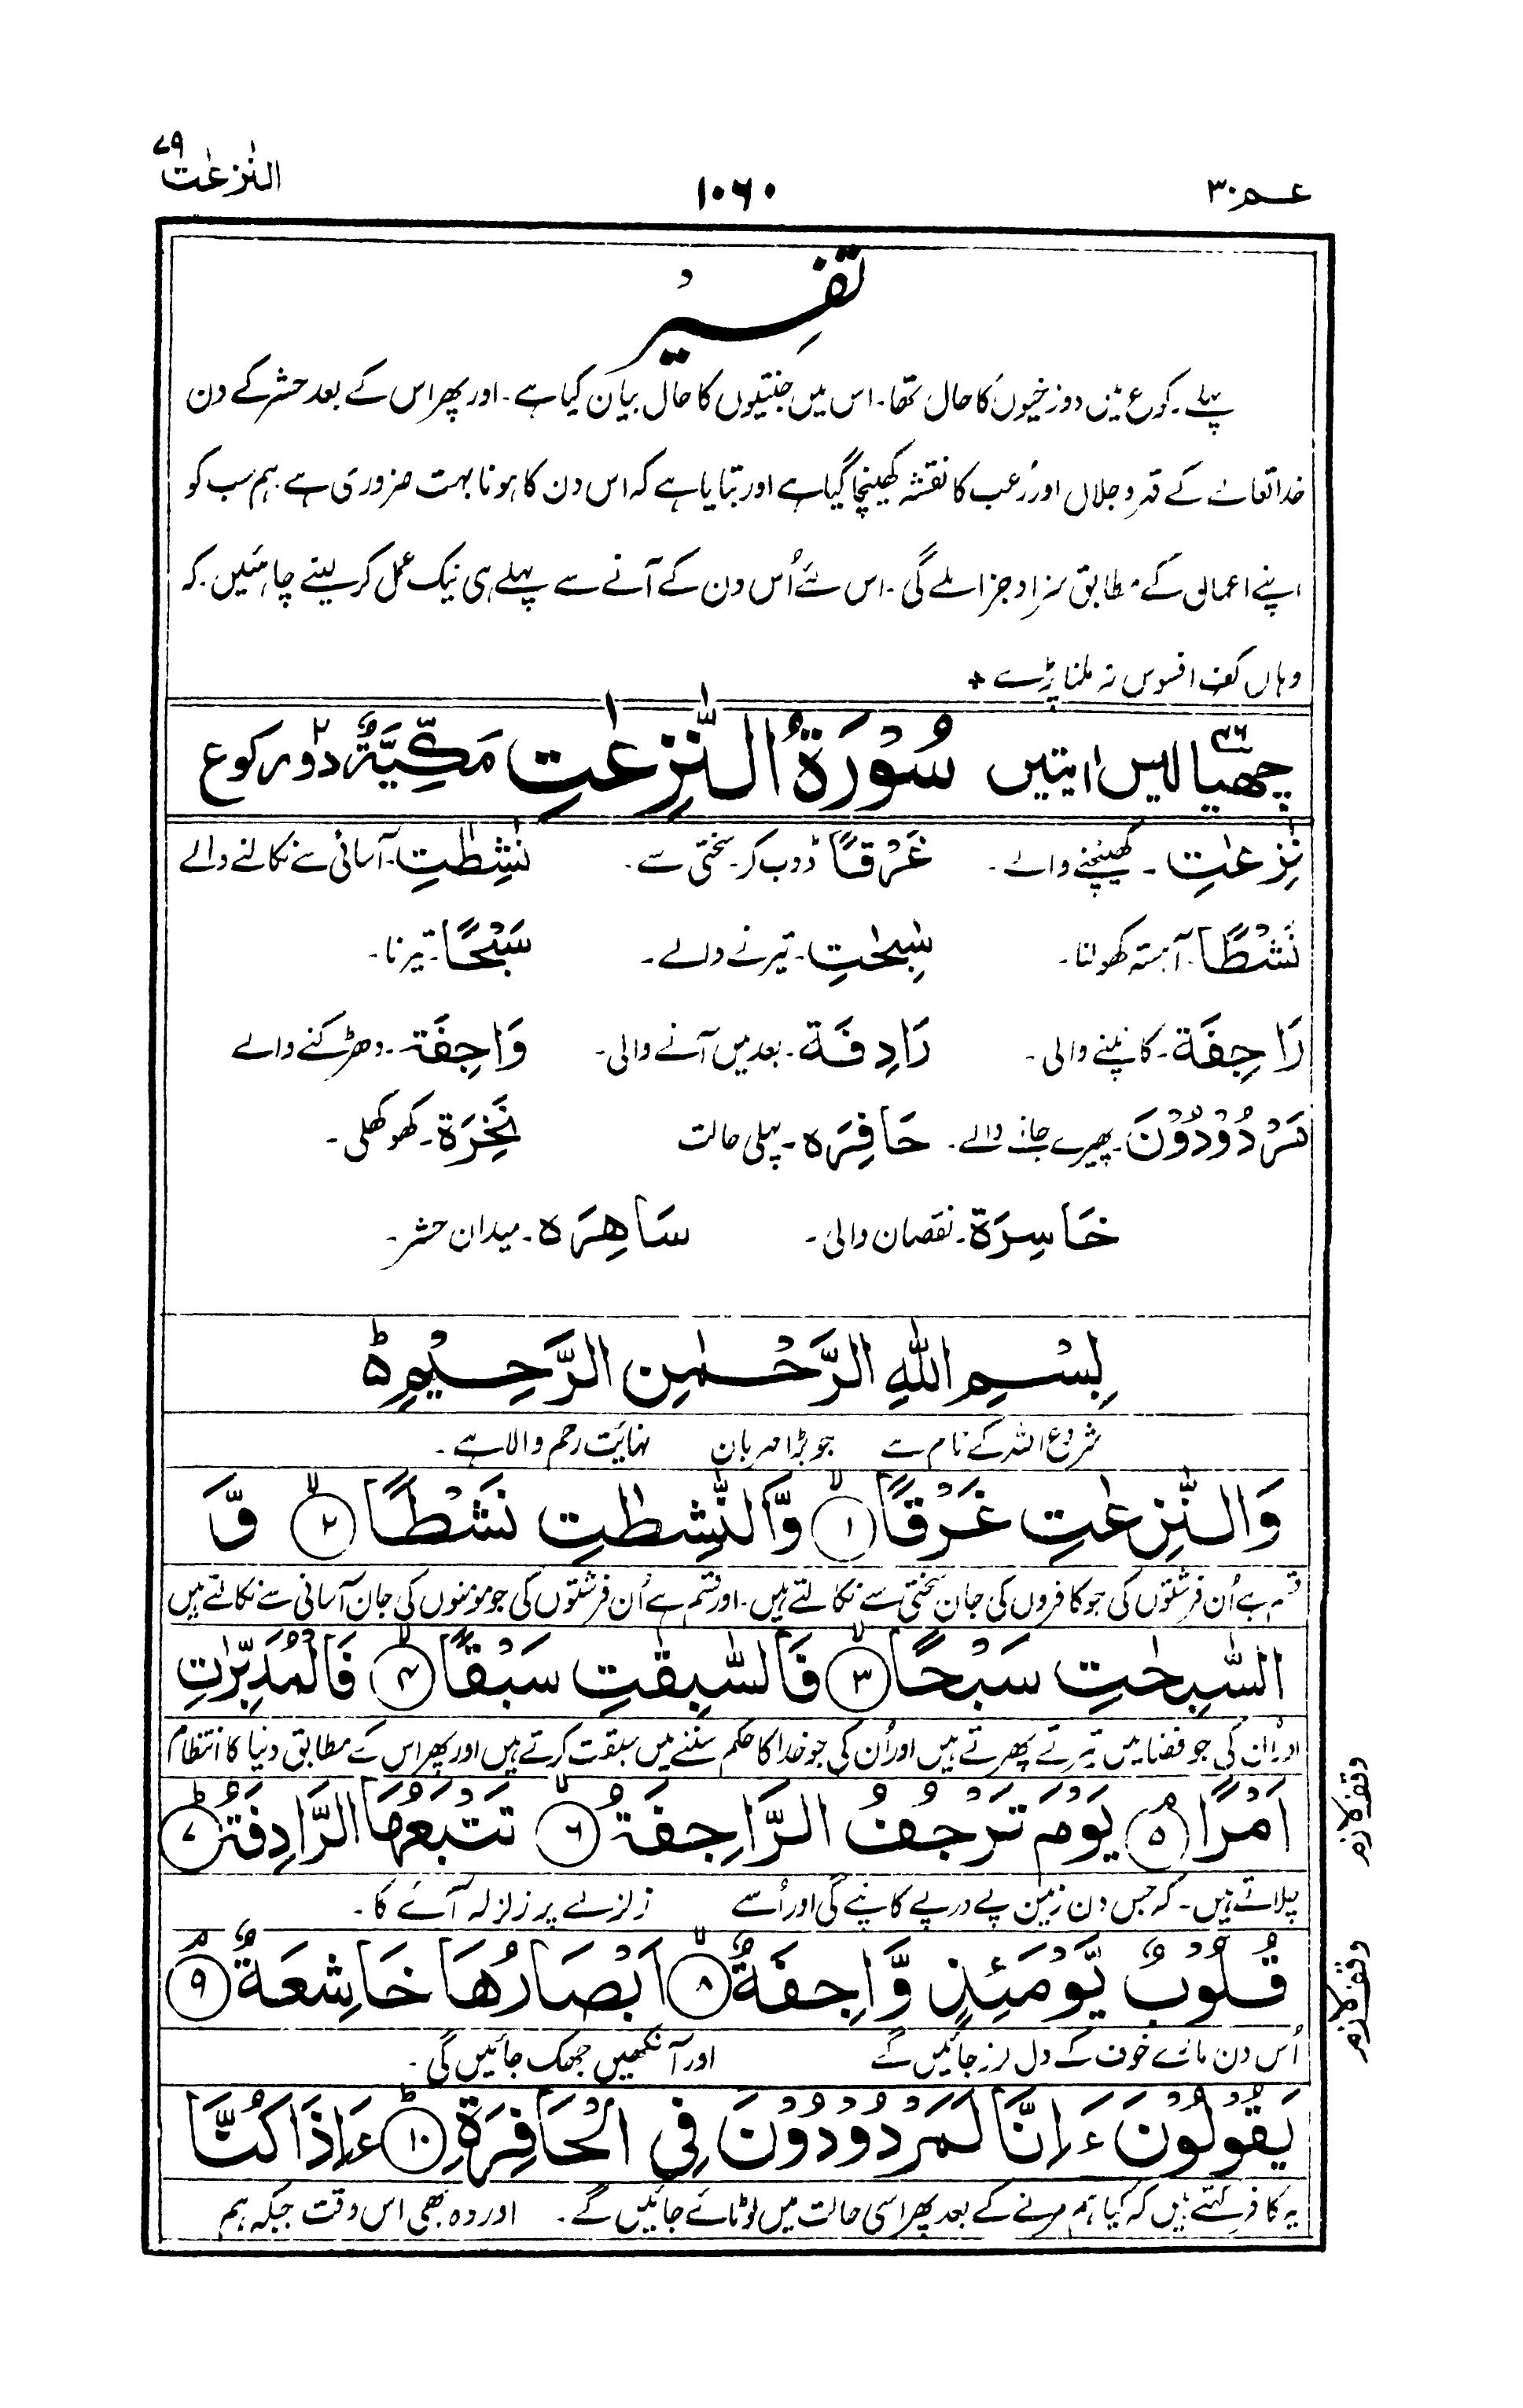 عـم ۳۰ ۱۰۶۰ النٰزعٰت ۷۹
تفسیر
پہلے رکوع میں دوزخیوں کا حال تھا۔ اس میں جنتیوں کا حال بیان کیا ہے۔ اور پھر اس کے بعد حشر کے دن
خدا تعالےٰ کے قہر و جلال اور رُعب کا نقشہ کھینچا گیا ہے اور بتایا ہے کہ اس دن کا ہونا بہت ضروری ہے۔ ہم سب کو
اپنے اعمال کے مطابق سزا و جزا ملے گی۔ اس لئے اُس دن کے آنے سے پہلے ہی نیک عمل کر لینے چاہئیں۔ کہ
وہاں کف افسوس نہ ملنا پڑے +
چھیالیس ۴۶ ایتیں سُوْرَةُ النّٰزِعٰتِ مَكِّيَّةٌ دو ۲ رکوع
نٰزِعٰتِ۔ کھینچنے والے۔ غَرْقًا ڈوب کر۔ سختی سے۔ نٰشِطٰتِ۔ آسانی سے نکالنے والے
نَشْطًا۔ آہستہ کھولنا۔ سٰبِحٰتِ۔ تیرنے والے۔ سَبْحًا۔ تیرنا۔
رَاجِفَة۔ کانپنے والی۔ رَادِفَة۔ بعد میں آنے والی۔ وَاجِفَة۔ دھڑکنے والے
مَرْدُوْدُوْنَ۔ پھیرے جانے والے۔ حَافِرَہ۔ پہلی حالت نَخِرَة۔ کھوکھلی۔
خَاسِرَة۔ نقصان والی۔ سَاهِرَہ۔ میدان حشر۔
بِسْمِ اللّٰهِ الرَّحْمٰنِ الرَّحِيْمِ ۝ ط
شروع اللہ کے نام سے جو بڑا مہربان نہائیت رحم والا ہے۔
وَالنّٰزِعٰتِ غَرْقًا ۙ ۱ وَّالنّٰشِطٰتِ نَشْطًا ۙ ۲ وَّ
قسم ہے اُن فرشتوں کی جو کافروں کی جان سختی سے نکالتے ہیں۔ اور قسم ہے اُن فرشتوں کی جو مومنوں کی جان آسانی سے نکالتے ہیں
السّٰبِحٰتِ سَبْحًا ۙ ۳ فَالسّٰبِقٰتِ سَبْقًا ۙ ۴ فَالْمُدَبِّرٰتِ
اور اُن کی جو فضا میں تیرتے پھرتے ہیں اور اُن کی جو خدا کا حکم سننے میں سبقت کرتے ہیں اور پھر اس کے مطابق دنیا کا انتظام
اَمْرًا ۘ ۵ يَوْمَ تَرْجُفُ الرَّاجِفَةُ ۙ ۶ تَتْبَعُهَا الرَّادِفَةُ ؕ ۷
وقف لازم
چلاتے ہیں۔ کہ جس دن زمین پے درپے کانپے گی اور اُسے زلزلے پر زلزلہ آئے گا۔
قُلُوْبٌ يَّوْمَئِذٍ وَّاجِفَةٌ ۙ ۸ اَبْصَارُهَا خَاشِعَةٌ ۘ ۹
وقف لازم
اُس دن مارے خوف کے دل لرز جائیں گے اور آنکھیں جھک جائیں گی۔
يَقُوْلُوْنَ ءَاِنَّا لَمَرْدُوْدُوْنَ فِي الْحَافِرَةِ ؕ ۱۰ ءَاِذَا كُنَّا
یہ کافر کہتے ہیں کہ کیا ہم مرنے کے بعد پھر اسی حالت میں لوٹائے جائیں گے۔ اور وہ بھی اس وقت جبکہ ہم